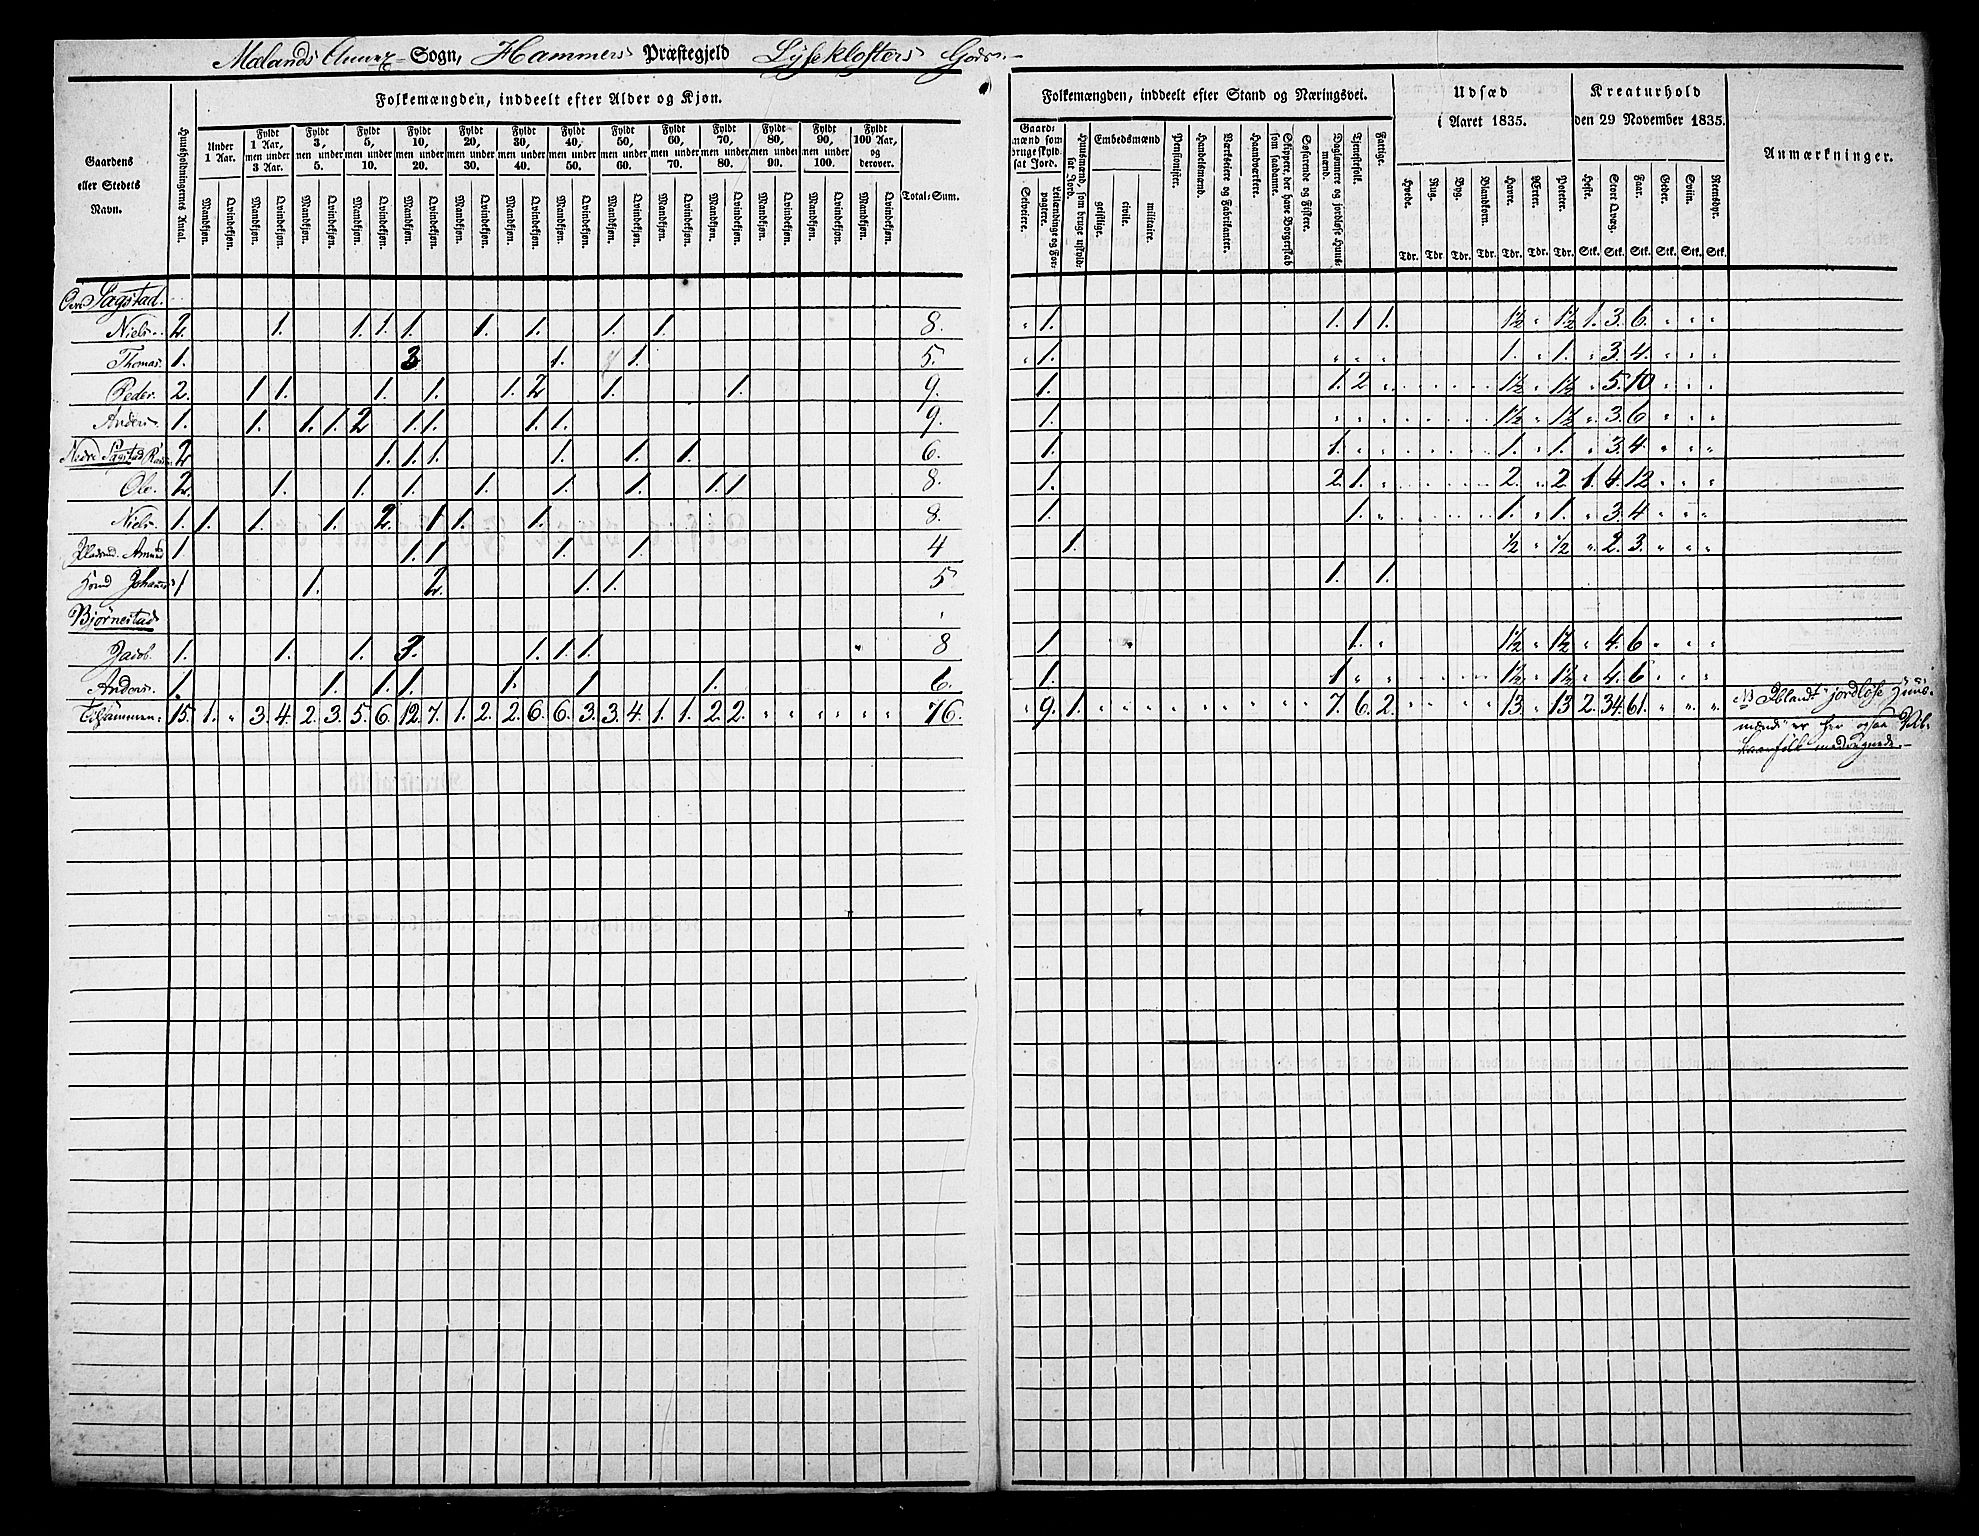 Mælands Annex Sogn, Hammers Præstegjeld Lysekloster Gods
Folkemængden, inddeelt efter Alder og Kjøn.
Folkemængden, inddeelt efter Stand og Næringsvei.
Udsæd i Aaret 1835.
Kreaturhold den 29 November 1835.
Gaardens eller Stedets Navn.
Huusholdningernes Antal.
Under 1 Aar.
Fyldt 1 Aar, men under 3 Aar.
Fyldt 3, men under 5.
Fyldt 5, men under 10.
Fyldt 10, men under 20.
Fyldt 20, men under 30.
Fyldt 30, men under 40.
Fyldt 40, men under 50.
Fyldt 50, men under 60.
Fyldt 60, men under 70.
Fyldt 70, men under 80.
Fyldt 80, men under 90.
Fyldt 90, men under 100.
Fyldt 100 Aar, og derover.
Mandkjøn. Qvindekjøn.
Total-Sum.
Gaardmænd som bruge skyldsat Jord.
Selveiere.
Leilændinge og Forpagtere.
Huusmænd, som bruge uskyldsat Jord.
Embedsmænd
geistlige.
civile.
militaire.
Pensionister.
Handelsmænd.
Værkseiere og Fabrikanter.
Haandværkere.
Skippere, der have Borgerskab som saadanne.
Søfarende og Fiskere.
Daglønnere og jordløse Huusmænd.
Tjenestefolk.
Fattige.
Hvede. Rug. Byg. Blandkorn. Havre. Erter. Poteter.
Tdr. Tdr. Tdr. Tdr. Tdr. Tdr. Tdr.
Heste. Stort Qvæg. Faar. Geder. Sviin. Reensdyr.
Stk. Stk. Stk. Stk. Stk. Stk.
Anmærkninger.
Øvre Sagstad.
Niels. 2. 1. 1. 1. 1. 1. 1. 1. 1. 8. " 1. 1. 1 1. 1½ " 1½ 1. 3. 6. " " "
Thomas. 1. 3 1. 1. 5. " 1. " " " 1. " 1. " 3. 4. " " "
Peder. 2. 1 1. 1. 1. 1. 2 1. 1. 9. 1. 1. 2 " 1½ " 1½ " 5. 10 " " "
Anders. 1. 1. 1. 1. 2 1. 1. 1. 1. 9. 1. " " " 1½ " 1½ " 3. 6 " " "
Nedre Sagstad 2 1. 1. 1. 1. 1. 1. 6. 1. 1. " " 1. " 1. " 3. 4. " " "
Ole. 2. 1. 1. 1. 1. 1. 1. 1. 1 8. 1. 2 1. " 2. " 2 1. 4. 12 " " "
Niels. 1. 1. 1. 1. 2. 1 1. 1. 8. 1. 1. " 1. " 1. " 3. 4 " " "
Amund 1. 1. 1. 1. 1. 4 1. ½ " ½ " 2. 3. " " "
Johannes 1 1. 2. 1. 1. 5 1. 1.
Bjørnestad
Jacob. 1. 1. 1. 3. 1. 1. 1. 8 1. 1. " 1½ " 1½ " 4. 6 " " "
Anders. 1. 1. 1. 1. 1. 1. 1. 6. 1. 1 " " 1½ " 1½ " 4. 6 " " "
Tilsammen: 15. 1. " 3. 4. 2. 3. 5. 6. 12. 7. 1. 2. 2. 6. 6. 3. 3. 4. 1. 1. 2. 2. " " " " " " 76. " 9. 1. " " " " " " " " " 7. 6. 2. " " " " 13. " 13 2. 34. 61. " " "
NB. Iblandt "jordløse Huus-
mænd" er her ogsaa
medregnede.